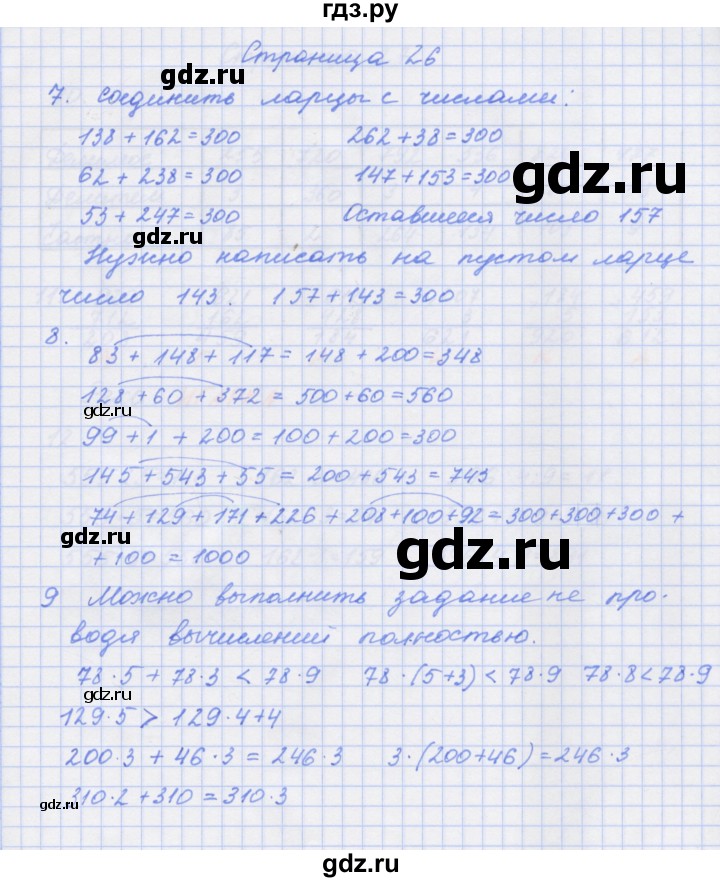 гдз.ру
Страница 26
gdz.ru
7. Соединить ларцы с числами:
138 + 162 = 300 262 + 38 = 300
62 + 238 = 300 147 + 153 = 300
gdz.ru
53 + 247 = 300 Оставшееся число 157
gdz.ru
Нужно написать на пустом ларце
число 143. 157 + 143 = 300
8.
83 + 148 + 117 = 148 + 200 = 348
128 + 60 + 372 = 500 + 60 = 560
gdz.ru
99 + 1 + 200 = 100 + 200 = 300
145 + 543 + 55 = 200 + 543 = 743
74 + 129 + 171 + 226 + 208 + 100 + 92 = 300 + 300 + 300 +
gdz.ru
gdz.ru
+ 100 = 1000
9 Можно выполнить задание не про-
водя вычислений полностью.
78·5 + 78·3 < 78·9 78·(5+3) < 78·9 78·8 < 78·9
gdz.ru
129·5 > 129·4+4
200·3 + 46·3 = 246·3 3·(200+46) = 246·3
gdz.ru
310·2 + 310 = 310·3
gdz.ru